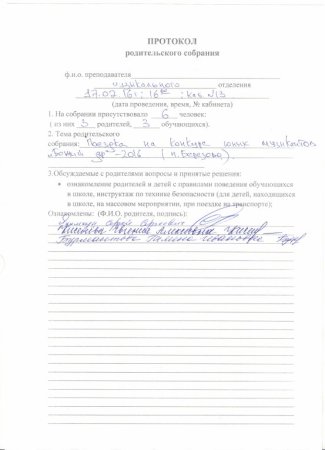 ПРОТОКОЛ
родительского собрания
ф.и.о. преподавателя
музыкального отделения
17.02.16г; 16 00; каб. №13
(дата проведения, время, № кабинета)
1. На собрании присутствовало 6 человек:
( из них 3 родителей, 3 обучающихся).
2. Тема родительского
собрания: Поездка на конкурс юных музыкантов
2016 (п. Березово)
3.Обсуждаемые с родителями вопросы и принятые решения:
• ознакомление родителей и детей с правилами поведения обучающихся
в школе, инструктаж по технике безопасности (для детей, находящихся
в школе, на массовом мероприятии, при поездке на транспорте);
Ознакомлены: (Ф.И.О. родителя, подпись):
Сергей
Евгения Алексеевна
Галина Ивановна